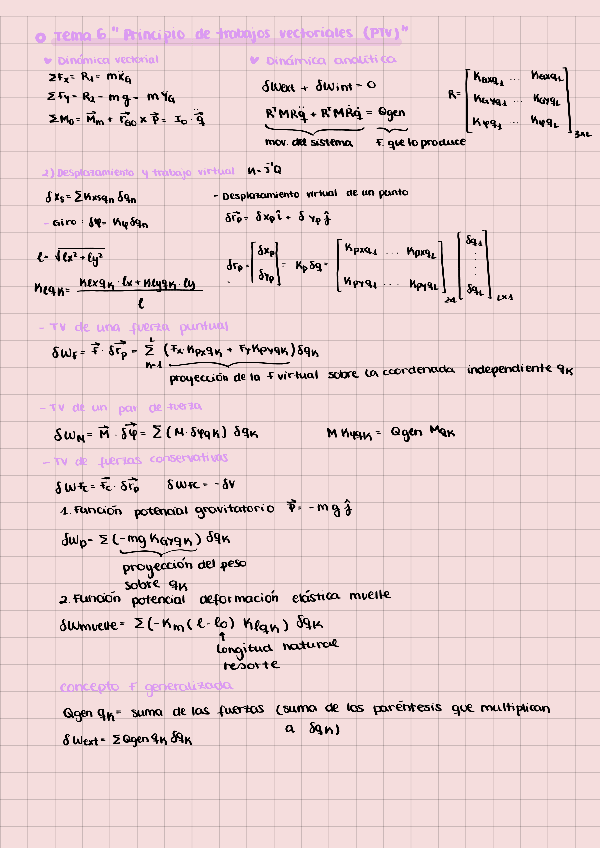 o Tema 6 "Principio de trabajos vectoriales (PTV)"
♥ Dinámica vectorial
ΣFx = R₁ = mẍG
ΣFy = R₂ - mg - mÿG
ΣM₀ = M⃗m + r⃗GO × P⃗ = I₀ · q̈
♥ Dinámica analítica
δWext + δWint = 0
RᵀMRq̈ + RᵀMṘq̇ = Qgen
mov. del sistema F. que lo produce
R = [KGxq₁ ... KGxqL
KGyq₁ ... KGyqL
Kφq₁ ... Kφq₂] 3×L
2) Desplazamiento y trabajo virtual K = J⁻¹Q
δxs = ΣKxsqn δqn
- Giro: δφ = Kφδqn
- Desplazamiento virtual de un punto
δr⃗p = δxp î + δyp ĵ
l = √lx² + ly²
Klqk = Klxqk · lx + Klyqk · ly / l
δrp = [δxp δyp] = Kp δq = [Kpxq₁ ... Kpxq₂
Kpyq₁ ... Kpyq₂] [δq₁ ⋮ δqL] L×1
- TV de una fuerza puntual
δWF = F⃗ · δr⃗p = Σ (Fx·Kpxqk + Fy Kpyqk) δqk
proyección de la F virtual sobre la coordenada independiente qk
- TV de un par de fuerza
δWM = M⃗ · δφ⃗ = Σ (M · δφqk) δqk
M Kφqk = Qgen Mqk
- TV de fuerzas conservativas
δWfc = F⃗c · δr⃗p δWfc = -δV
1. Función potencial gravitatorio P⃗ = -mgĵ
δWp = Σ (-mg KGyqk) δqk
proyección del peso
sobre qk
2. Función potencial deformación elástica muelle
δWmuelle = Σ (-Km (l - l₀) Klqk) δqk
↑
longitud natural
resorte
concepto F generalizada
Qgen qk = suma de las fuerzas (suma de los paréntesis que multiplican
a δqk)
δWext = ΣQgen qk δqk